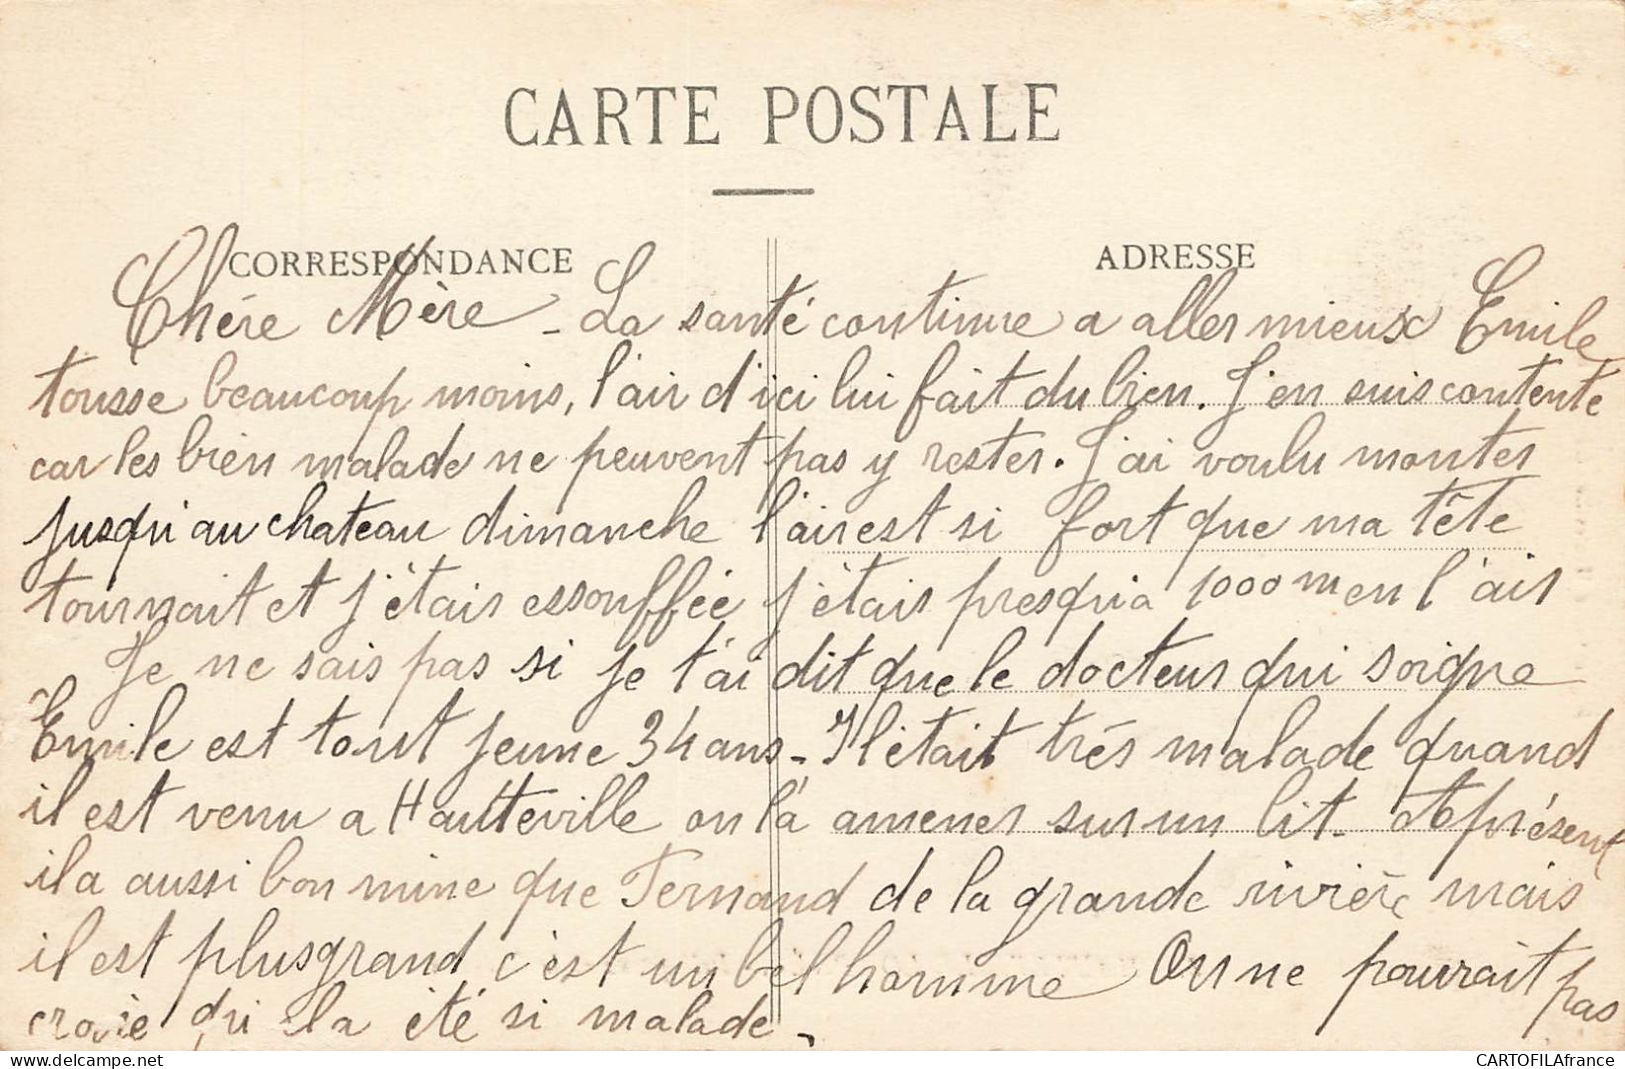 CARTE POSTALE
CORRESPONDANCE ADRESSE
Chére Mère - La santé continue a aller mieux Emile
tousse beaucoup moins, l'air d'ici lui fait du bien. J'en suis contente
car les bien malade ne peuvent pas y rester. J'ai voulu monter
jusqu'au chateau dimanche l'air est si fort que ma tête
tournait et j'étais essouffée j'étais presqu'a 1000 m en l'air
Je ne sais pas si je t'ai dit que le docteur qui soigne
Emile est tout jeune 34 ans - Il était trés malade quand
il est venu a Hautteville on l'a amener sur un lit - Aprésent
il a aussi bon mine que Fernand de la grande rivière mais
il est plus grand c'est un bel homme On ne pourrait pas
croire qu'il a été si malade -
CARTOFILAfrance